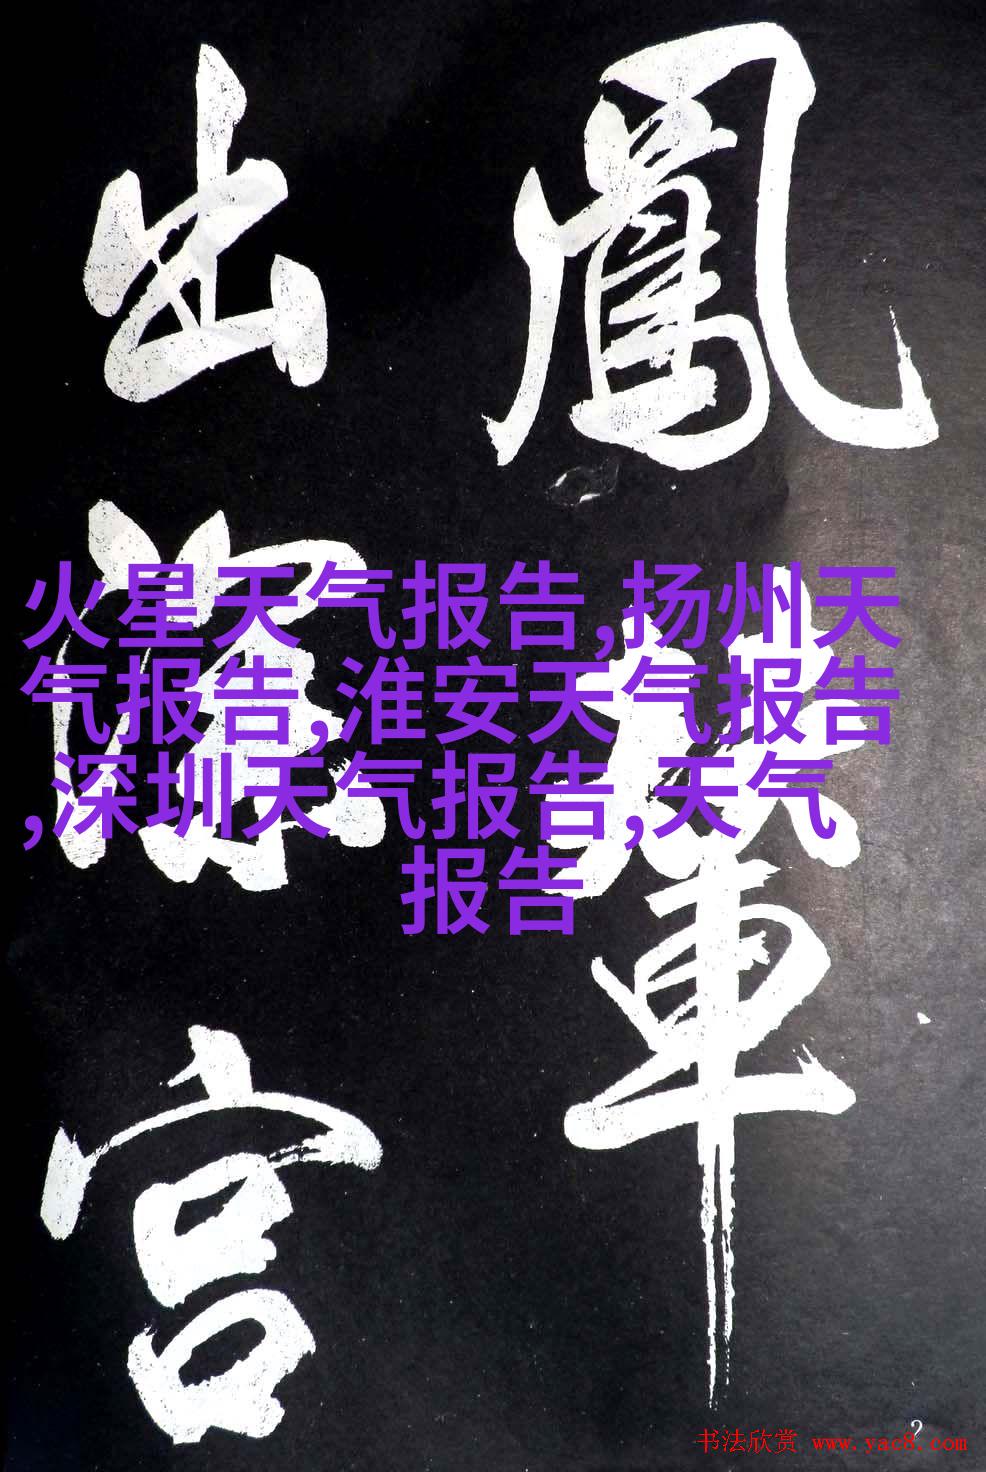 鳳扶車
出深宮
火星天气报告,扬州天
气报告,淮安天气报告
,深圳天气报告,天气
报告
2
书法欣赏 www.yac8.com